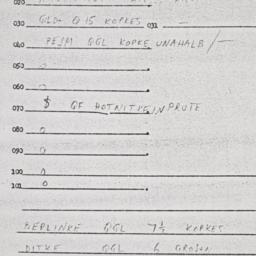 020
030 GLD- Q 15 KOPKES 031 —
040 PESM GGL KOPKE UNAHALB/—
050 0
060 0
070 $ GF HOTNITKEINPRUTE
080 0
090 0
100 0
101 0
BERLINKE GGL 7½ KOPKES
DITKE GGL 6 GROSCH